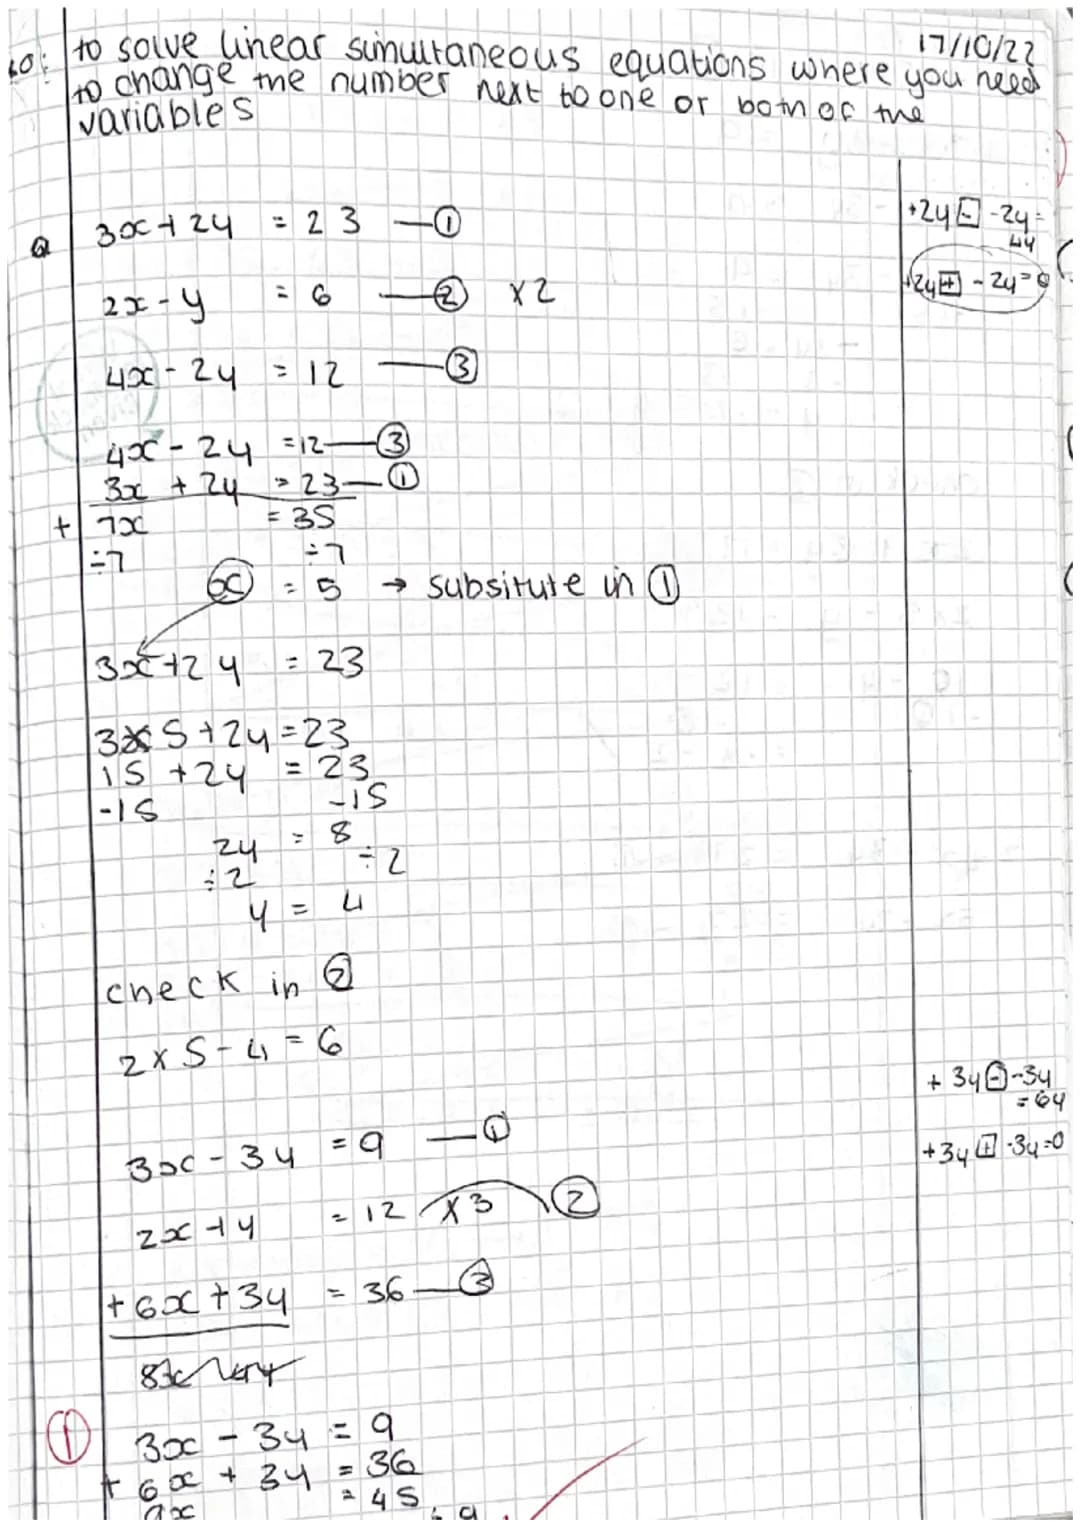 LO: to solve linear simultaneous equations where you need 17/10/22
to change the number next to one or both of the
variables
Q 3x + 2y = 23 — ①
+2y - -2y =
4y
2x - y = 6 — ② x2
+2y + - 2y = 0
4x - 2y = 12 — ③
4x - 2y = 12 — ③
3x + 2y = 23 — ①
+ 7x = 35
÷7 ÷7
x = 5 → subsitute in ①
3x + 2y = 23
3x5 + 2y = 23
15 + 2y = 23
-15 -15
2y = 8
÷2 ÷2
y = 4
check in ②
2 x 5 - 4 = 6
+ 3y - -3y
= 6y
3x - 3y = 9 — ①
+3y + -3y = 0
2x + y = 12 x3 ②
+ 6x + 3y = 36 — ③
① 3x - 3y = 9
+ 6x + 3y = 36
9x = 45
÷ 9